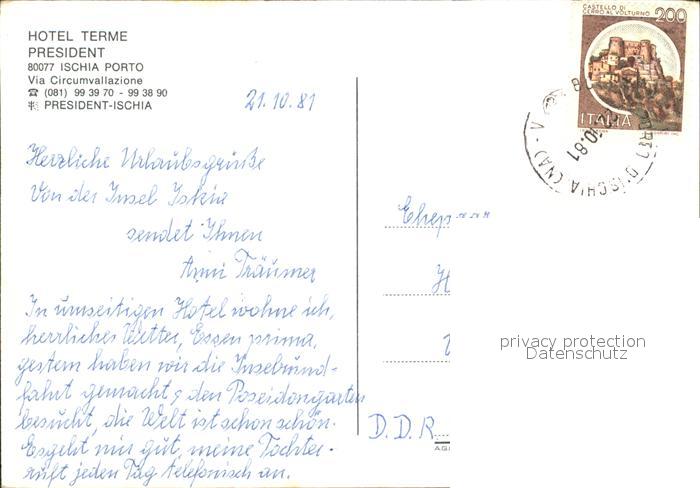 HOTEL TERME
PRESIDENT
80077 ISCHIA PORTO
Via Circumvallazione
☎ (081) 99 39 70 - 99 38 90
PRESIDENT-ISCHIA
21.10.81
CASTELLO DI
CERRO AL VOLTURNO 200
ITALIA
D'ISCHIA (NA) - V
10.81
Herzliche Urlaubsgrüße
Von der Insel Iskia
sendet Ihnen
Anni Träumer
In umseitigen Hotel wohne ich,
herrliches Wetter, Essen prima,
gestern haben wir die Inselrund-
fahrt gemacht, den Poseidongarten
besucht, die Welt ist schon schön.
Es geht mir gut, meine Tochter
ruft jeden Tag telefonisch an.
Ehep
H
D.D.R.
privacy protection
Datenschutz